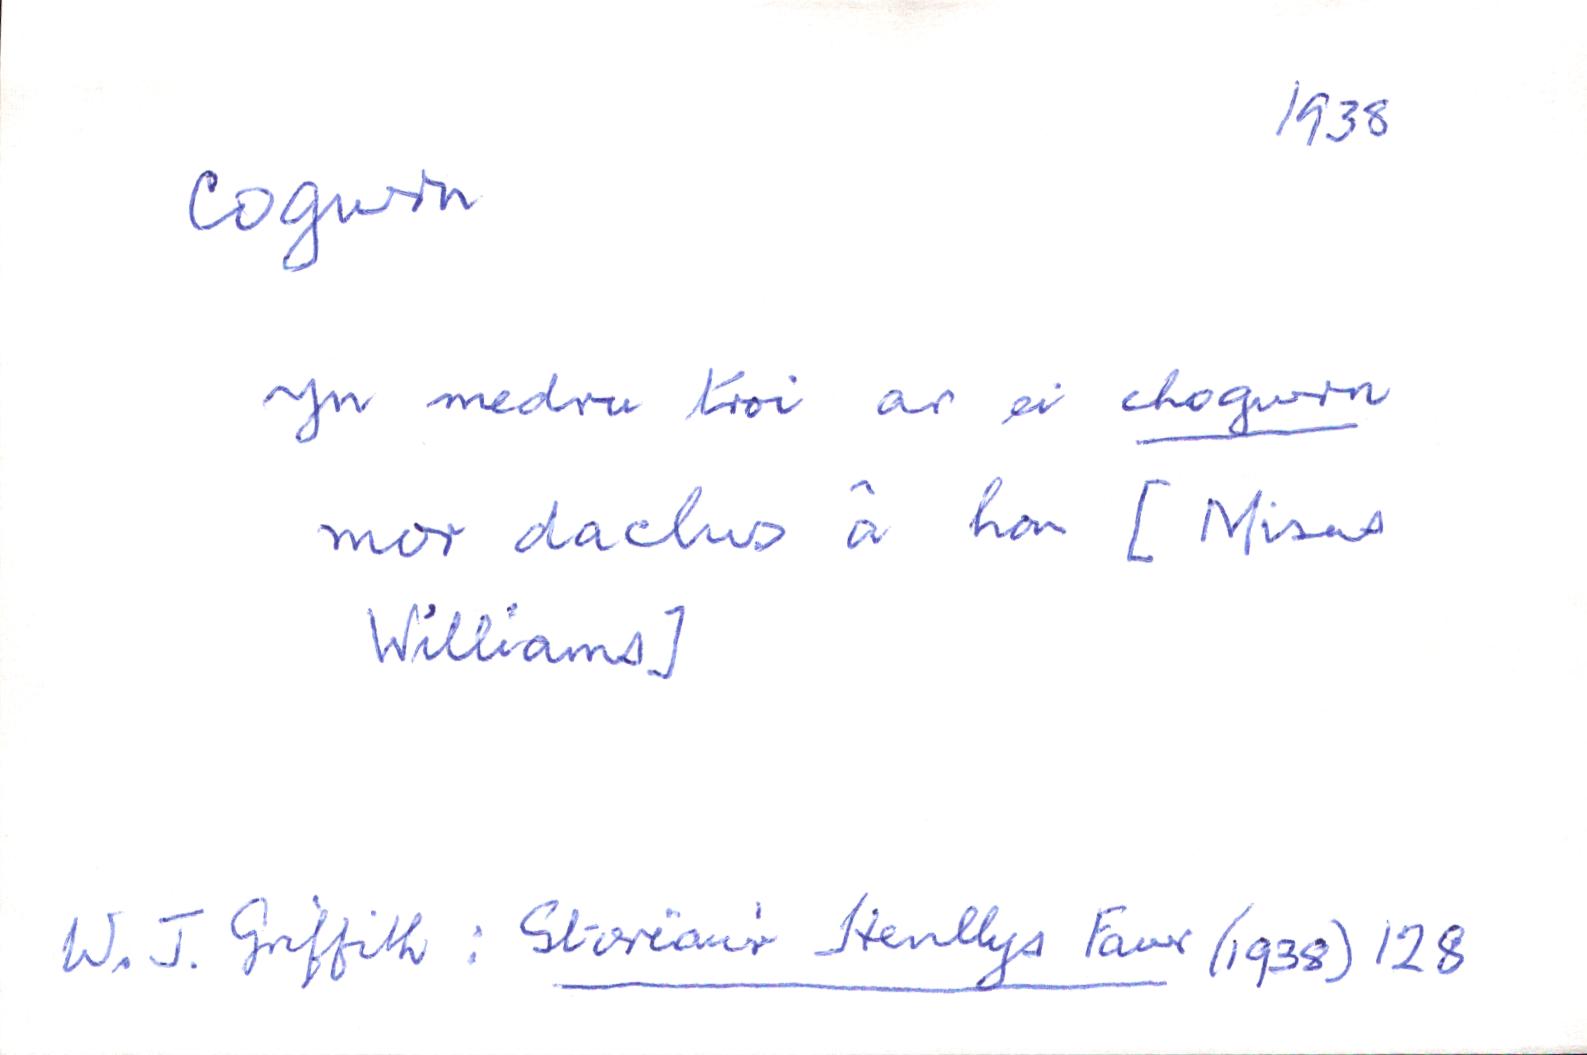 1938
cogwrn
yn medru troi ar ei chogwrn
mor daclus â hon [ Misus
Williams]
W. J. Griffith : Storïau'r Henllys Fawr (1938) 128